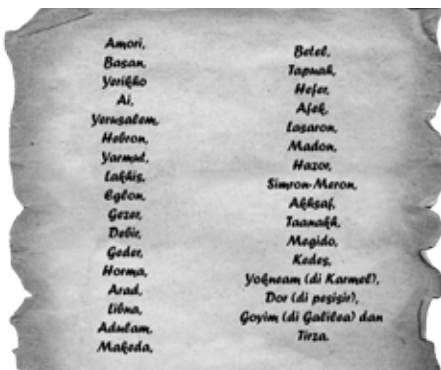 Amori,
Basan,
Yerikho
Ai,
Yerusalem,
Hebron,
Yarmut,
Lakhis,
Eglon,
Gezer,
Debir,
Geder,
Horma,
Arad,
Libna,
Adulam,
Makeda,
Betel,
Tapuah,
Hefer,
Afek,
Lasaron,
Madon,
Hazor,
Simron-Meron,
Akhsaf,
Taanakh,
Megido,
Kedes,
Yokneam (di Karmel),
Dor (di pesisir),
Goyim (di Galilea) dan
Tirza.